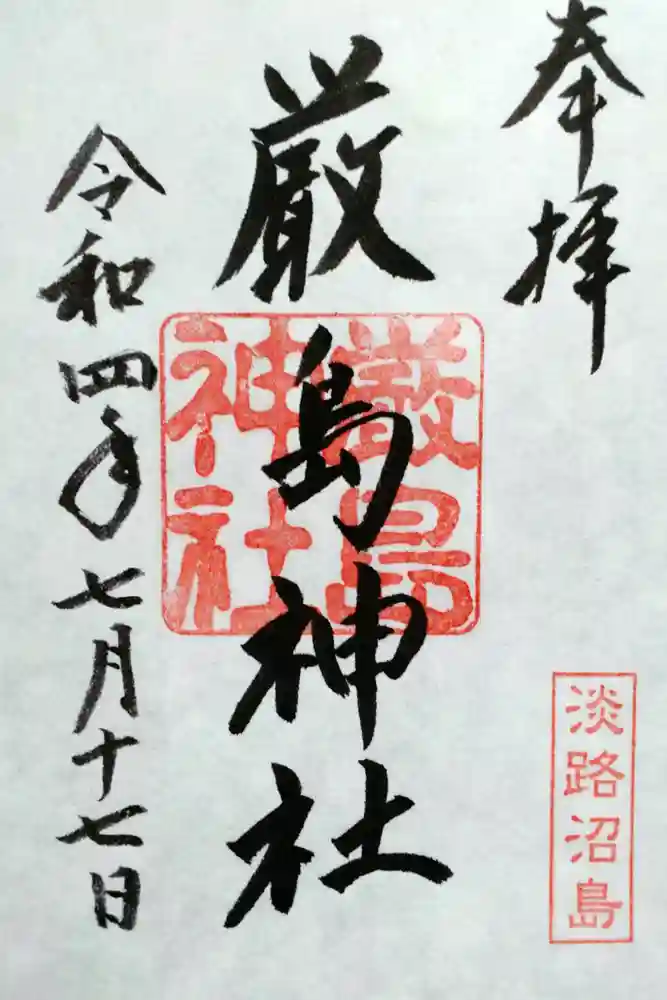 奉拝
淡路沼島
厳島神社
厳島神社
令和四年七月十七日